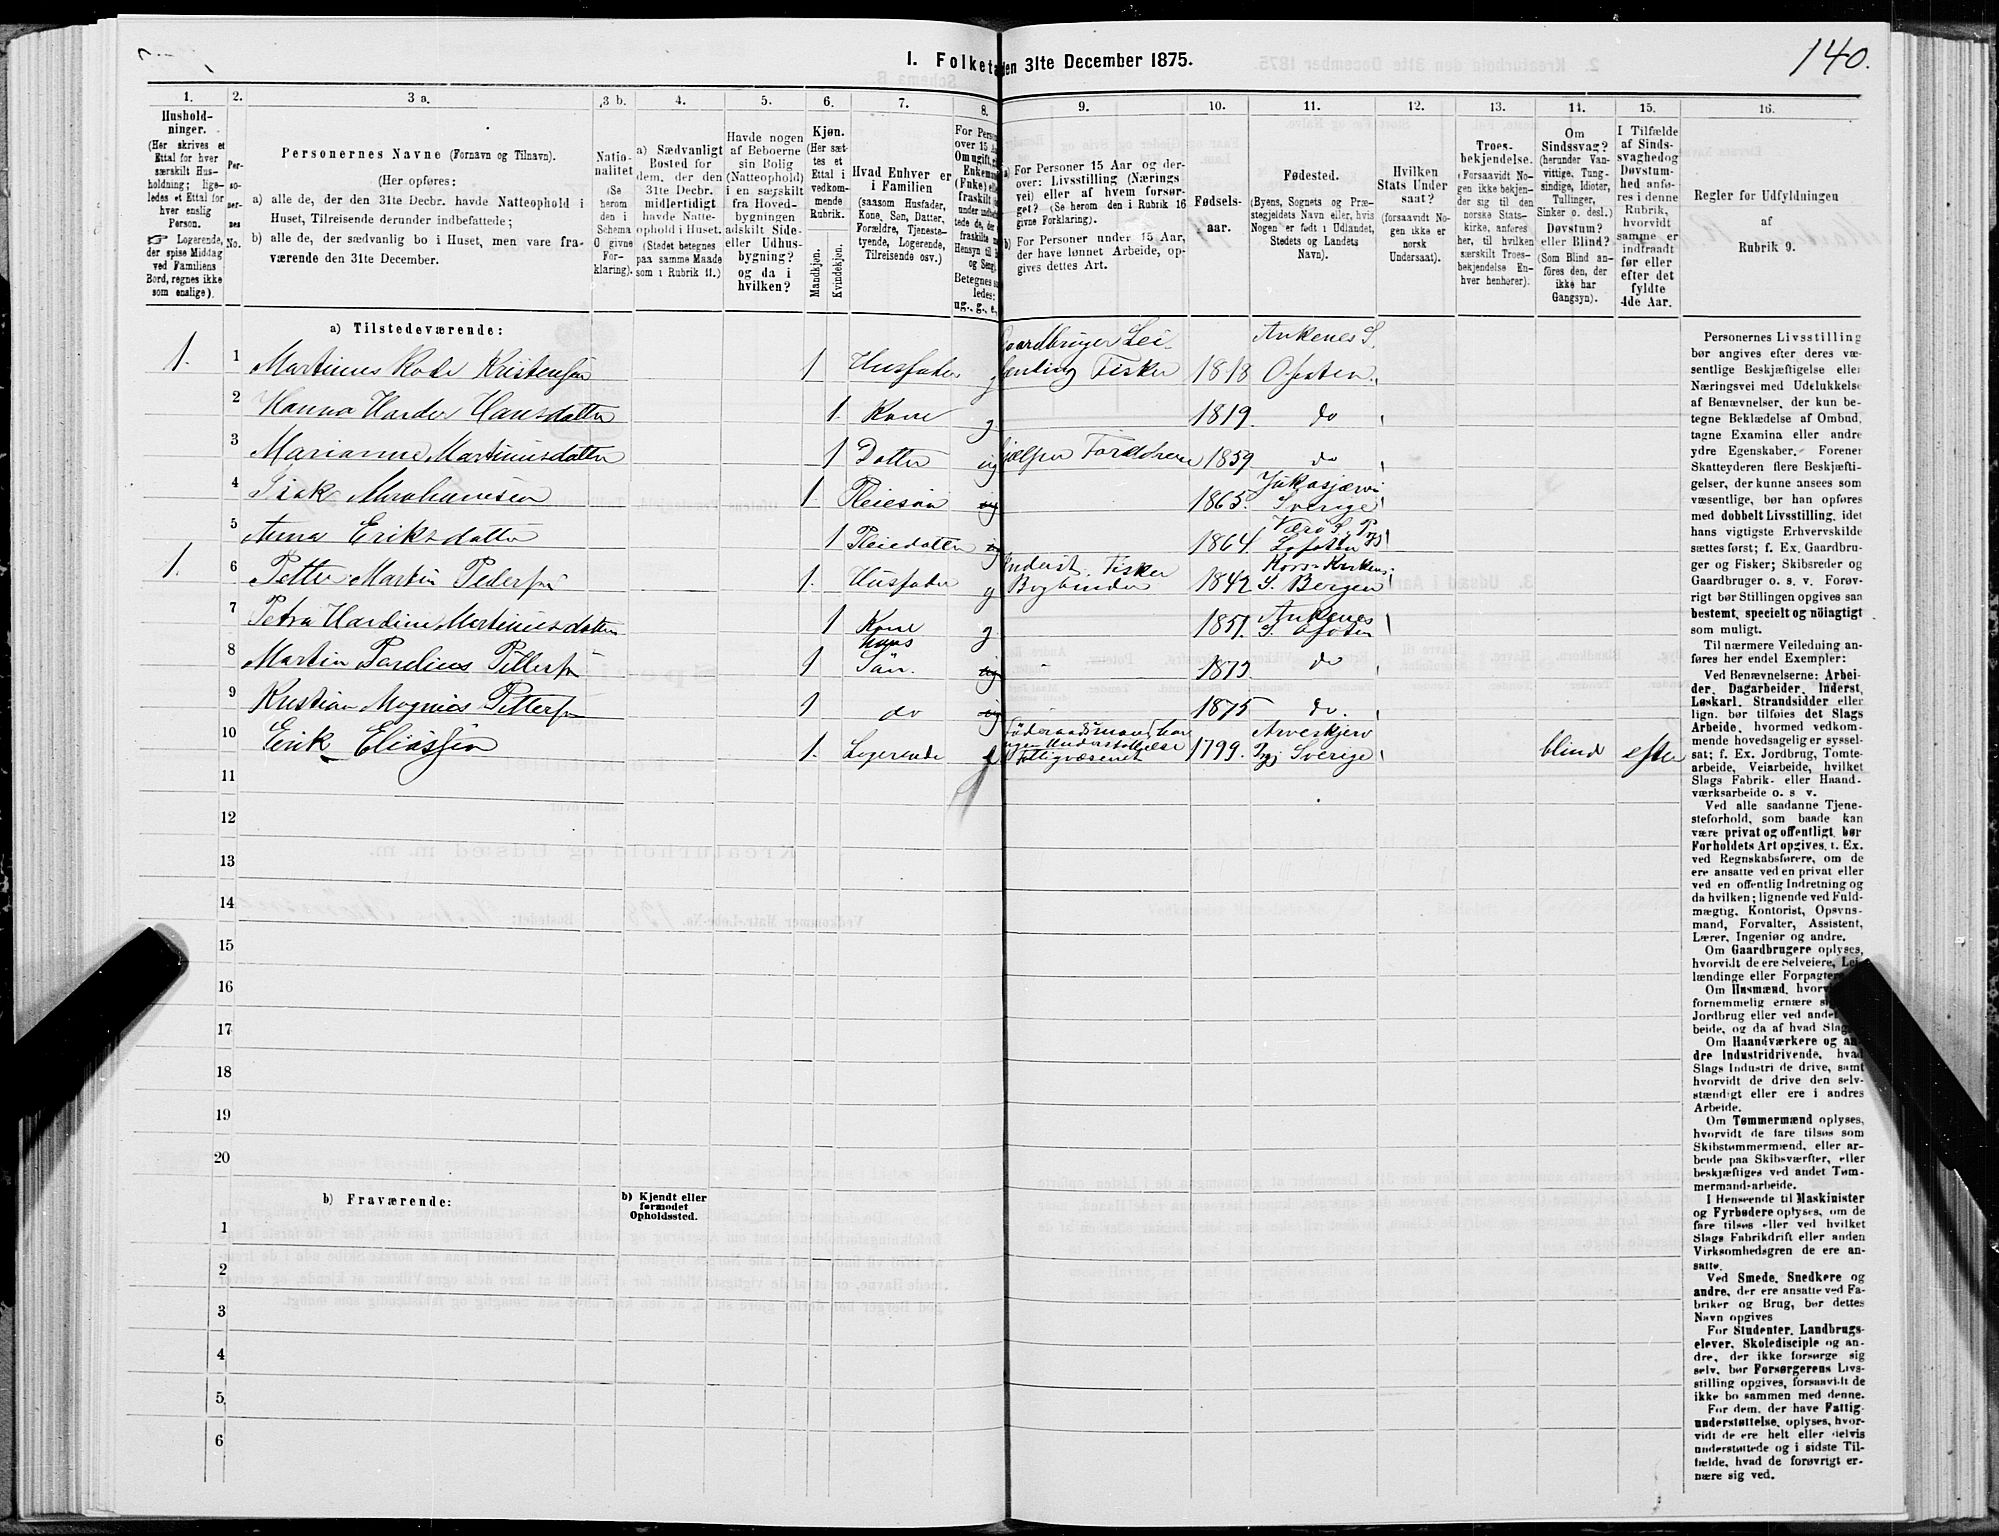 140.
I. Folketa
den 31te December 1875.
1.
Hushold-
ninger.
(Her skrives et
Ettal for hver
særskilt Hus-
holdning; lige-
ledes et Ettal for
hver enslig
Person.
Logerende,
der spise Middag
ved Familiens
Bord, regnes ikke
som enslige).
2.
Per-
so-
ner-
nes
No.
3 a.
Personernes Navne (Fornavn og Tilnavn).
(Her opføres:
a) alle de, der den 31te Decbr. havde Natteophold i
Huset, Tilreisende derunder indbefattede;
b) alle de, der sædvanlig bo i Huset, men vare fra-
værende den 31te December.
3 b.
Natio-
nalitet
(Se
herom
den i
Schema
O givne
For-
klaring).
4.
a) Sædvanligt
Bosted for
dem, der den
31te Decbr.
midlertidigt
havde Natte-
ophold i Huset.
(Stedet betegnes
paa samme Maade
som i Rubrik 11.)
5.
Havde nogen
af Beboerne
sin Bolig
(Natteophold)
i en særskilt
fra Hoved-
bygningen
adskilt Side-
eller Udhus-
bygning?
og da i
hvilken?
6.
Kjøn.
(Her sæt-
tes et
Ettal i
vedkom-
mende
Rubrik.
Mandkjøn.
Kvindekjøn.
7.
Hvad Enhver er
i Familien
(saasom Husfader,
Kone, Søn, Datter,
Forældre, Tjeneste-
tyende, Logerende,
Tilreisende osv.)
8.
For Perso
over 15 Aa
Om ugift, g
Enkema
(Enke) elle
fraskilt
under indbe
tede de, der
fraskilte
Hensyn til
og Seng.
Betegnes s
ledes:
ug., g., e,
9.
a) For Personer 15 Aar og der-
over: Livsstilling (Nærings
vei) eller af hvem forsør-
get? (Se herom den i Rubrik 16
givne Forklaring).
b) For Personer under 15 Aar,
der have lønnet Arbeide, op-
gives dettes Art.
10.
Fødsels-
aar.
11.
Fødested.
(Byens, Sognets og Præ-
stegjeldets Navn eller, hvis
Nogen er født i Udlandet,
Stedets og Landets
Navn).
12.
Hvilken
Stats Under
saat?
(forsaavidt No-
gen ikke er
norsk
Undersaat).
13.
Troes-
bekjendelse.
(Forsaavidt No-
gen ikke bekjen-
der sig til den
norske Stats-
kirke, anføres
her, til hvilken
særskilt Troes-
bekjendelse En-
hver henhører).
14.
Om
Sindssvag?
(herunder Van-
vittige, Tung-
sindige, Idioter,
Tullinger,
Sinker o. desl.)
Døvstum?
eller Blind?
(Som Blind an-
føres den, der
ikke har
Gangsyn).
15.
I Tilfælde
af Sinds-
svaghedog
Døvstum-
hed anfø-
res i denne
Rubrik,
hvorvidt
samme er
indtraadt
før eller
efter det
fyldte
4de Aar.
16.
Regler for Udfyldningen
af
Rubrik 9.
a) Tilstedeværende:
1. 1 Martinus Kode Kristensen 1 Husfader g Gaardbruger Lei-
lænding Fisker 1818 Ankenes S.
Ofoten.
2 Hanna Harder Hansdatter 1. Kone g 1819. do
3 Marianne Martinusdatter 1 Datter ug hjælper Forældrene 1859 do
4 Isak Abrahamsen 1 Pleiesøn ug 1865. Jukasjærvi
Sverige
5 Anna Eriksdatter 1 Pleiedatter ug 1864. Værø S. P
Lofoten
1. 6 Petter Martin Pedersen 1. Husfader g Inderst. Fisker
Bogbinder 1842 Kors-Kirkens
S. Bergen
7 Petra Hardine Martinusdatter 1 Kone g 1851. Ankenes
S. Ofoten
8 Martin Parelius Pettersen 1 hans
Søn. ug 1873 do
9 Kristian Magnus Pettersen 1 do ug 1875 do.
10 Erik Eliassen 1. Logerende Føderaadsmand har
Understøttelse
Fattigvæsenet 1799. Sverige blind efter
11
12
13
14
15
16
17
18
19
20
b) Fraværende:
b) Kjendt eller
formodet
Opholdssted.
1
2
3
4
5
6
Personernes Livsstilling
bør angives efter deres væ-
sentlige Beskjæftigelse eller
Næringsvei med Udelukkelse
af Benævnelser, der kun be-
tegne Beklædelse af Ombud,
tagne Examina eller andre
ydre Egenskaber. Forener
Skatteyderen flere Beskjæfti-
gelser, der kunne ansees som
væsentlige, bør han opføres
med dobbelt Livsstilling, idet
hans vigtigste Erhvervskilde
sættes først; f. Ex. Gaardbru-
ger og Fisker; Skibsreder og
Gaardbruger o. s. v. Forøv-
rigt bør Stillingen opgives saa
bestemt, specielt og nöiagtigt
som muligt.
Til nærmere Veiledning an-
føres her endel Exempler:
Ved Benævnelserne: Arbei-
der, Dagarbeider, Inderst,
Løskarl, Strandsidder eller
lign. bør tilføies det Slags
Arbeide, hvormed vedkom-
mende hovedsagelig er syssel-
sat; f. Ex. Jordbrug, Tomte-
arbeide, Veiarbeide, hvilket
Slags Fabrik- eller Haand-
værksarbeide o. s v.
Ved alle saadanne Tjene-
steforhold, som baade kan
være privat og offentligt, bør
Forholdets Art opgives, t. Ex.
ved Regnskabsførere, om de
ere ansatte ved en privat eller
ved en offentlig Indretning og
da hvilken; lignende ved Fuld-
mægtig, Kontorist, Opsyns-
mand, Forvalter, Assistent,
Lærer, Ingeniør og andre.
Om Gaardbrugere oplyses,
hvorvidt de ere Selveiere, Lei-
lændinge eller Forpagtere
Om Husmænd, hvorv
fornemmelig ernære s
Jordbrug eller ved ande
beide, og da af hvad Slag
Om Haandværkere og an
dre Industridrivende, hvad
Slags Industri de drive, samt
hvorvidt de drive den selv-
stændigt eller ere i andres
Arbeide.
Om Tømmermænd oplyses,
hvorvidt de fare tilsøs som
Skibstømmermænd, eller ar-
beide paa Skibsværfter, eller
beskjæftiges ved andet Tøm-
mermand-arbeide.
I Henseende til Maskinister
og Fyrbødere oplyses, om de
fare tilsøs eller ved hvilket
Slags Fabrikdrift eller anden
Virksomhedsgren de ere an-
satte.
Ved Smede, Snedkere og
andre, der ere ansatte ved Fa-
briker og Brug, bør dettes
Navn opgives
For Studenter, Landbrugs-
elever, Skoledisciple og an-
dre, der ikke forsørge sig
selv, bør Forsørgerens Livs-
stilling opgives, forsaavidt de
ikke bo sammen med denne.
For dem, der have Fattig-
understøttelse, oplyses, hvor-
vidt de ere helt eller delvis
understøttede og i sidste Til-
fælde, hvad de forøvrigt er-
nære sig ved.